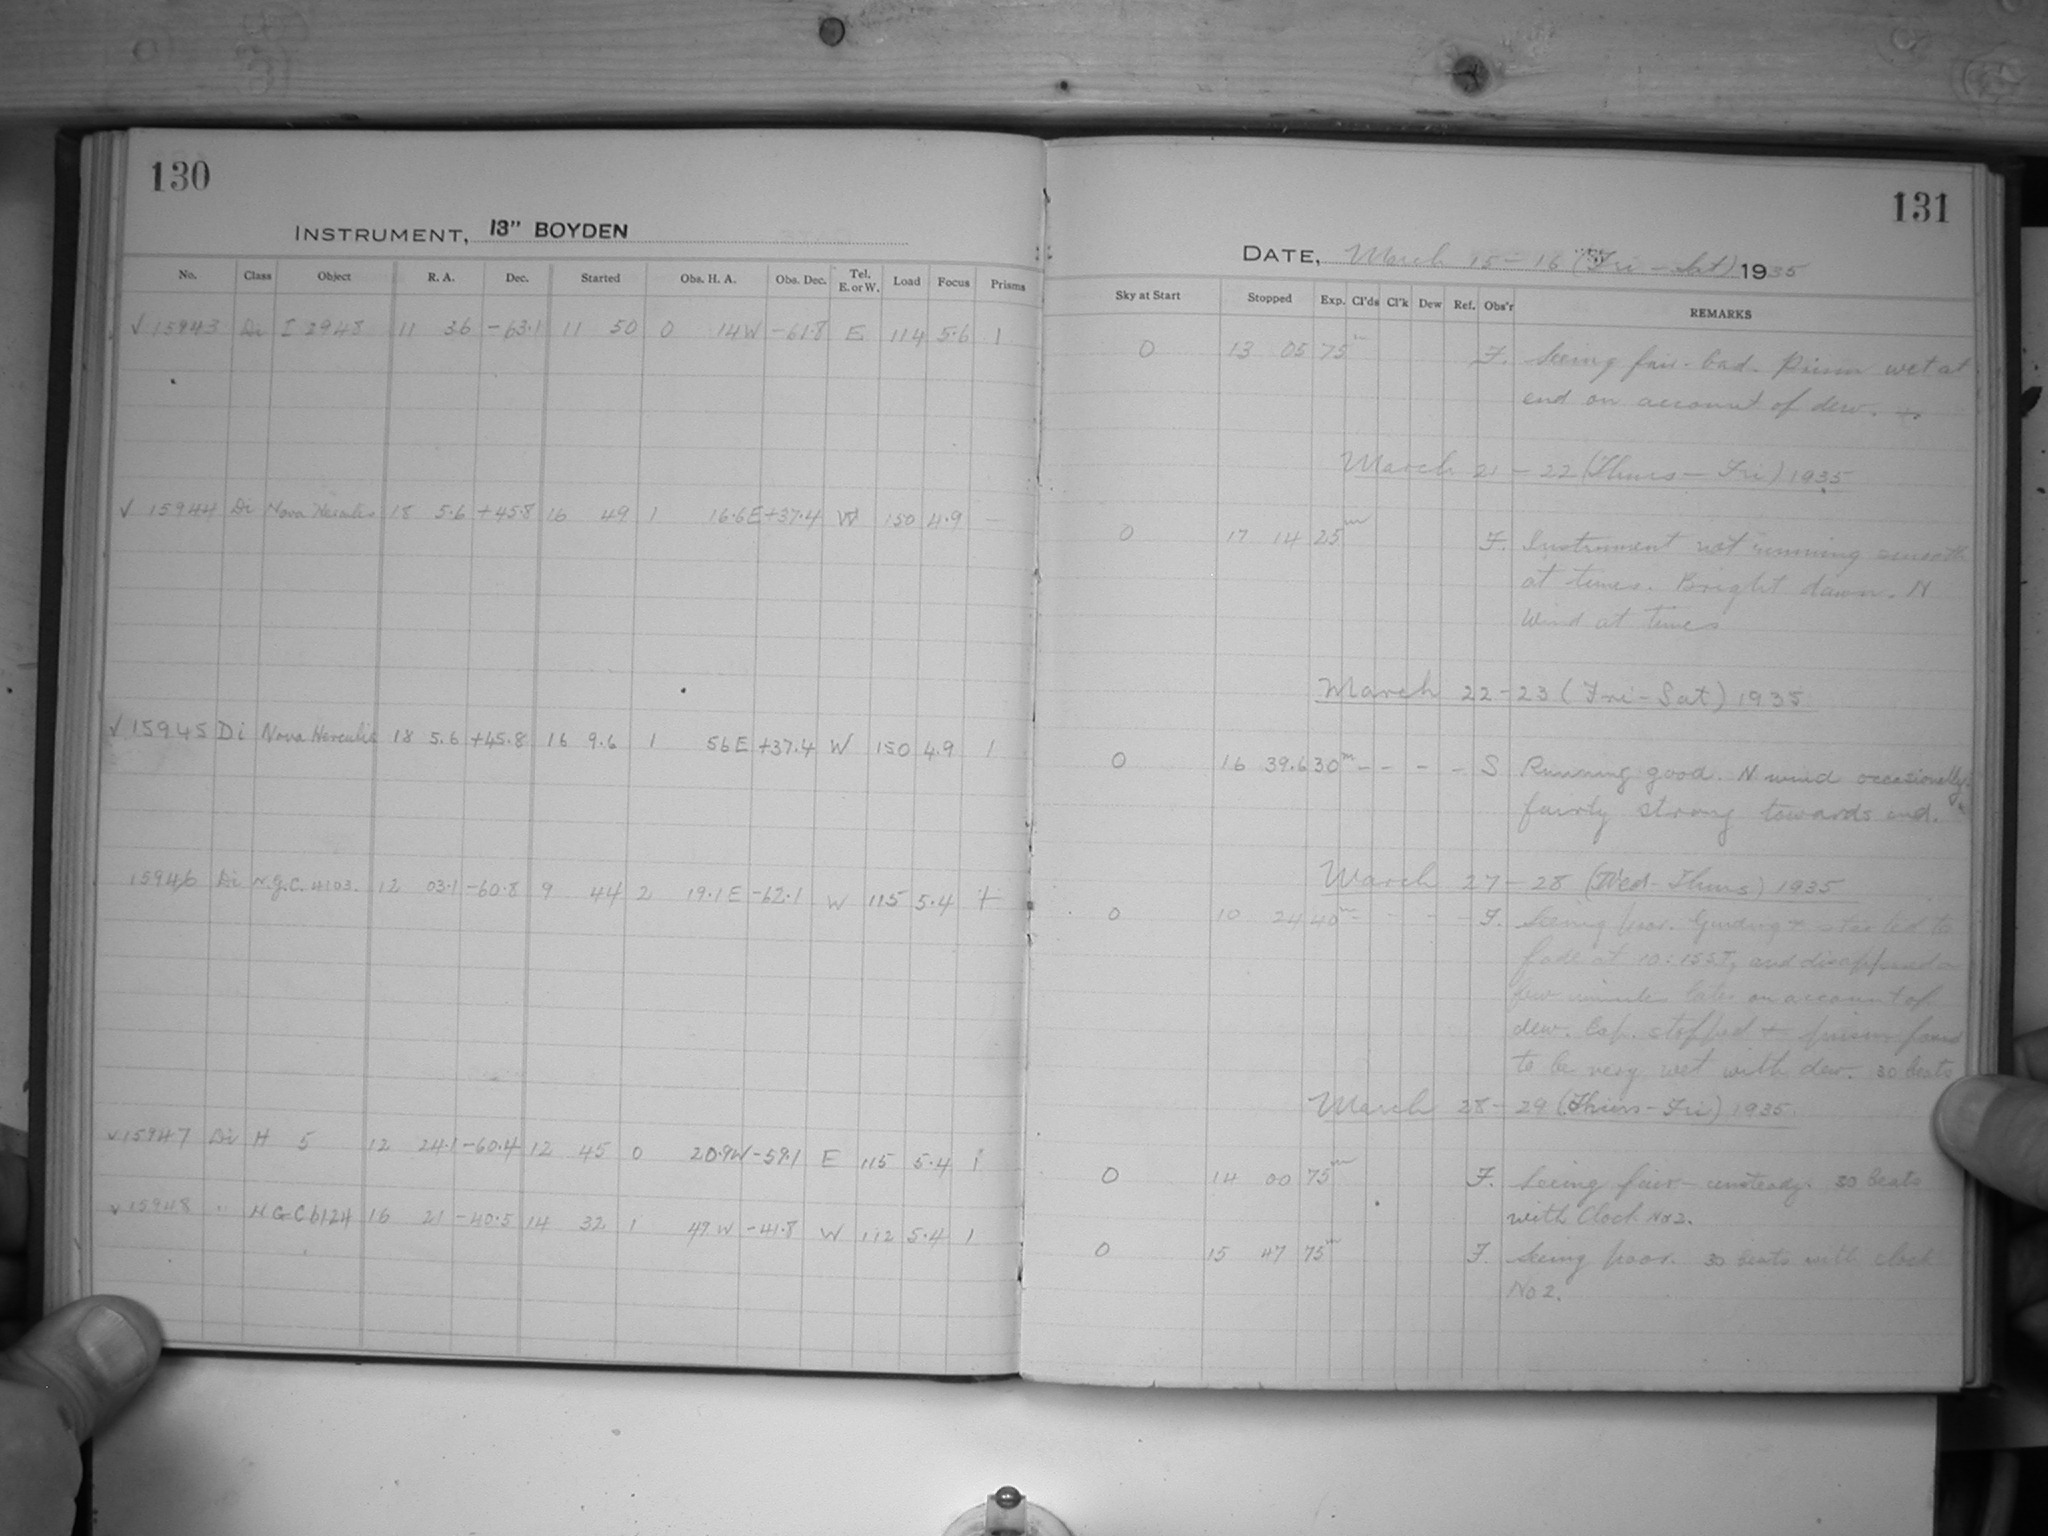 130
INSTRUMENT, 13" BOYDEN
No. Class Object R. A. Dec. Started Obs. H. A. Obs. Dec. Tel. E. or W. Load Focus Prisms
√ 15943 Di I 2948 11 36 -63.1 11 50 0 14W -61.8 E 114 5.6 1
√ 15944 Di Nova Herculis 18 5.6 +45.8 16 49 1 16.6E +37.4 W 150 4.9 —
√ 15945 Di Nova Herculis 18 5.6 +45.8 16 9.6 1 56E +37.4 W 150 4.9 1
15946 Di N.G.C. 4103. 12 03.1 -60.8 9 44 2 19.1E -62.1 W 115 5.4 +
√ 15947 Di H 5 12 24.1 -60.4 12 45 0 20.9W -59.1 E 115 5.4 1
√ 15948 " NGC 6124 16 21 -40.5 14 32 1 49W -41.8 W 112 5.4 1
131
DATE, March 15-16 (Fri-Sat) 1935
Sky at Start Stopped Exp. Cl'ds Cl'k Dew Ref. Obs'r REMARKS
0 13 05 75m F. Seeing fair-bad. Prism wet at
end on account of dew.
March 21-22 (Thurs-Fri) 1935
0 17 14 25m F. Instrument not running smooth
at times. Bright dawn. N
Wind at times
March 22-23 (Fri-Sat) 1935
0 16 39.6 30m - - - - S Running good. N wind occasionally
fairly strong towards end.
March 27-28 (Wed-Thurs) 1935
0 10 24 40m - - - - F. Seeing poor. Guiding started to
fade at 10:15 S.T, and disappeared a
few minutes later on account of
dew. Exp. stopped + prism found
to be very wet with dew. 30 beats
March 28-29 (Thurs-Fri) 1935
0 14 00 75m F. Seeing fair-unsteady. 30 beats
with Clock No 2.
0 15 47 75m F. Seeing poor. 30 beats with clock
No 2.